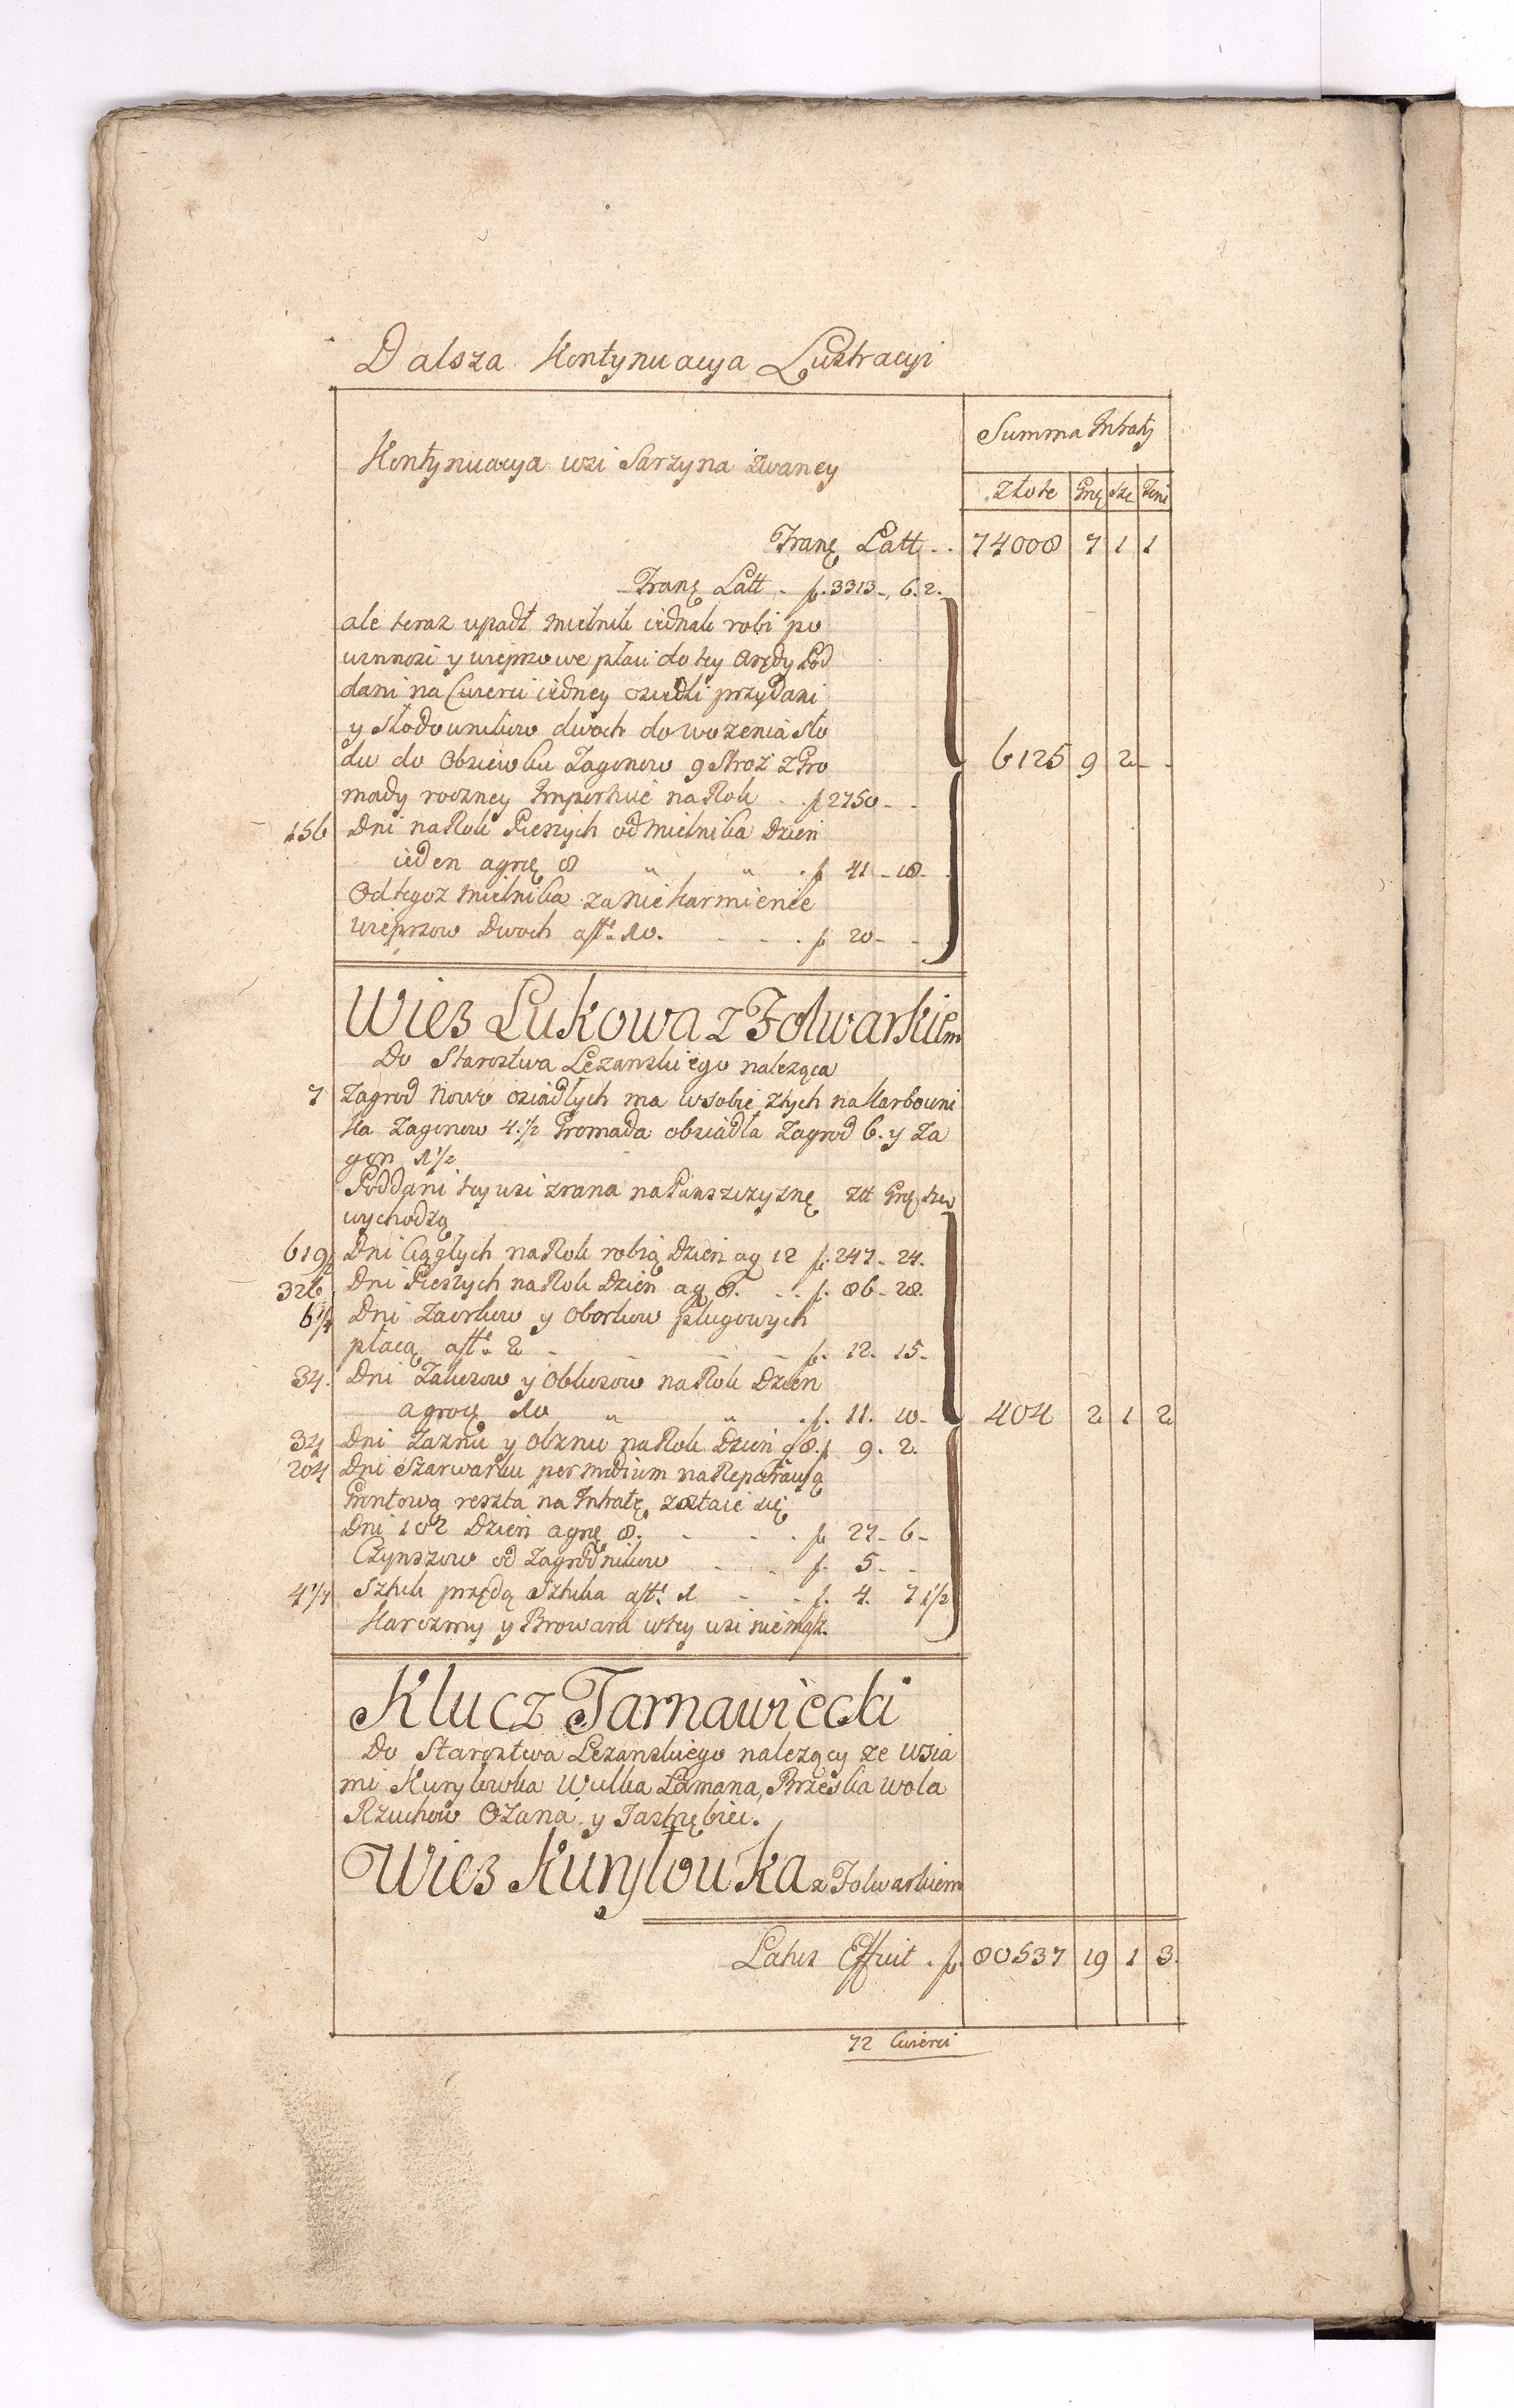 Dalsza Kontynuacya Lustracyi
Summa Intraty
Kontynuacya wsi Sarzyna zwaney
Złote Grę Sze Deni
Tranę Latt. . 74008 7 1 1
Tranę Latt. f. 3313 - 6. 2.
ale teraz upadł mielnik iednak robi po
winnosci y wieprzowe płaci do tey Arędy Pod
dani na Cwierci iedney osiedli przydani
y Słodownikow dwoch do wozenia sło
du do Obsiewku Zagonow 9 Stroż z Gro
6125 9 2 - -
mady roczney Importuie na Rok . . f 2750 - -
156 Dni na Rok Pieszych od Mielnika Dzien
ieden a grę 8 " " . f 41 - 18 -
Od tegoz Mielnika za nie karmienie
Wieprzow Dwoch a ffl 10. - - . f 20 - -
Wies Lukowa z Folwarkiem
Do Starostwa Lezanskiego naleząca
7 Zagrod nowo osiadłych ma w sobie, złych na Karbowni
ka Zagonow 4 1/2 Gromada obsiadła Zagrod 6. y Za
gon 1 1/2
Poddani tey wsi zrana na Panszczyznę Złł Grę Sze
wychodzą
619 1/2 Dni Ciągłych na Rok robią Dzien a g 12 f. 247 - 24.
326 Dni Pieszych na Rok Dzien a g 8. . . f. 86 - 28.
6 1/4 Dni Zaorkow y Oborkow pługowych
płacą a ffl 2 - - - - f. 12. 15 -
34. Dni Zakosow y Obkosow na Rok Dzien
a groę 10 " " . f. 11. 10 - 404 2 1 2
34 Dni Zaznu y Obznu na Rok Dzien g 8. f 9. 2.
204 Dni Szarwarku per medium na Reparacyą
Grontową reszta na Intratę zostaie się
Dni 102 Dzien a grę 8. - - . f 27 - 6 -
Czynszow od Zagrodnikow - - f. 5 - -
4 1/4 Sztuk przędą Sztuka a ffl 1 - - f. 4. 7 1/2
Karczmy y Browaru w tey wsi nie masz.
Klucz Tarnawiecki
Do Starostwa Lezanskiego nalezący ze Wsia
mi Kuryłowka Wulka Łamana, Brzeska Wola
Rzuchow Ozana y Jastrzębiec.
Wies Kuryłowka z Folwarkiem
Latus Effuit . f. 80537 19 1 3.
72 Cwierci